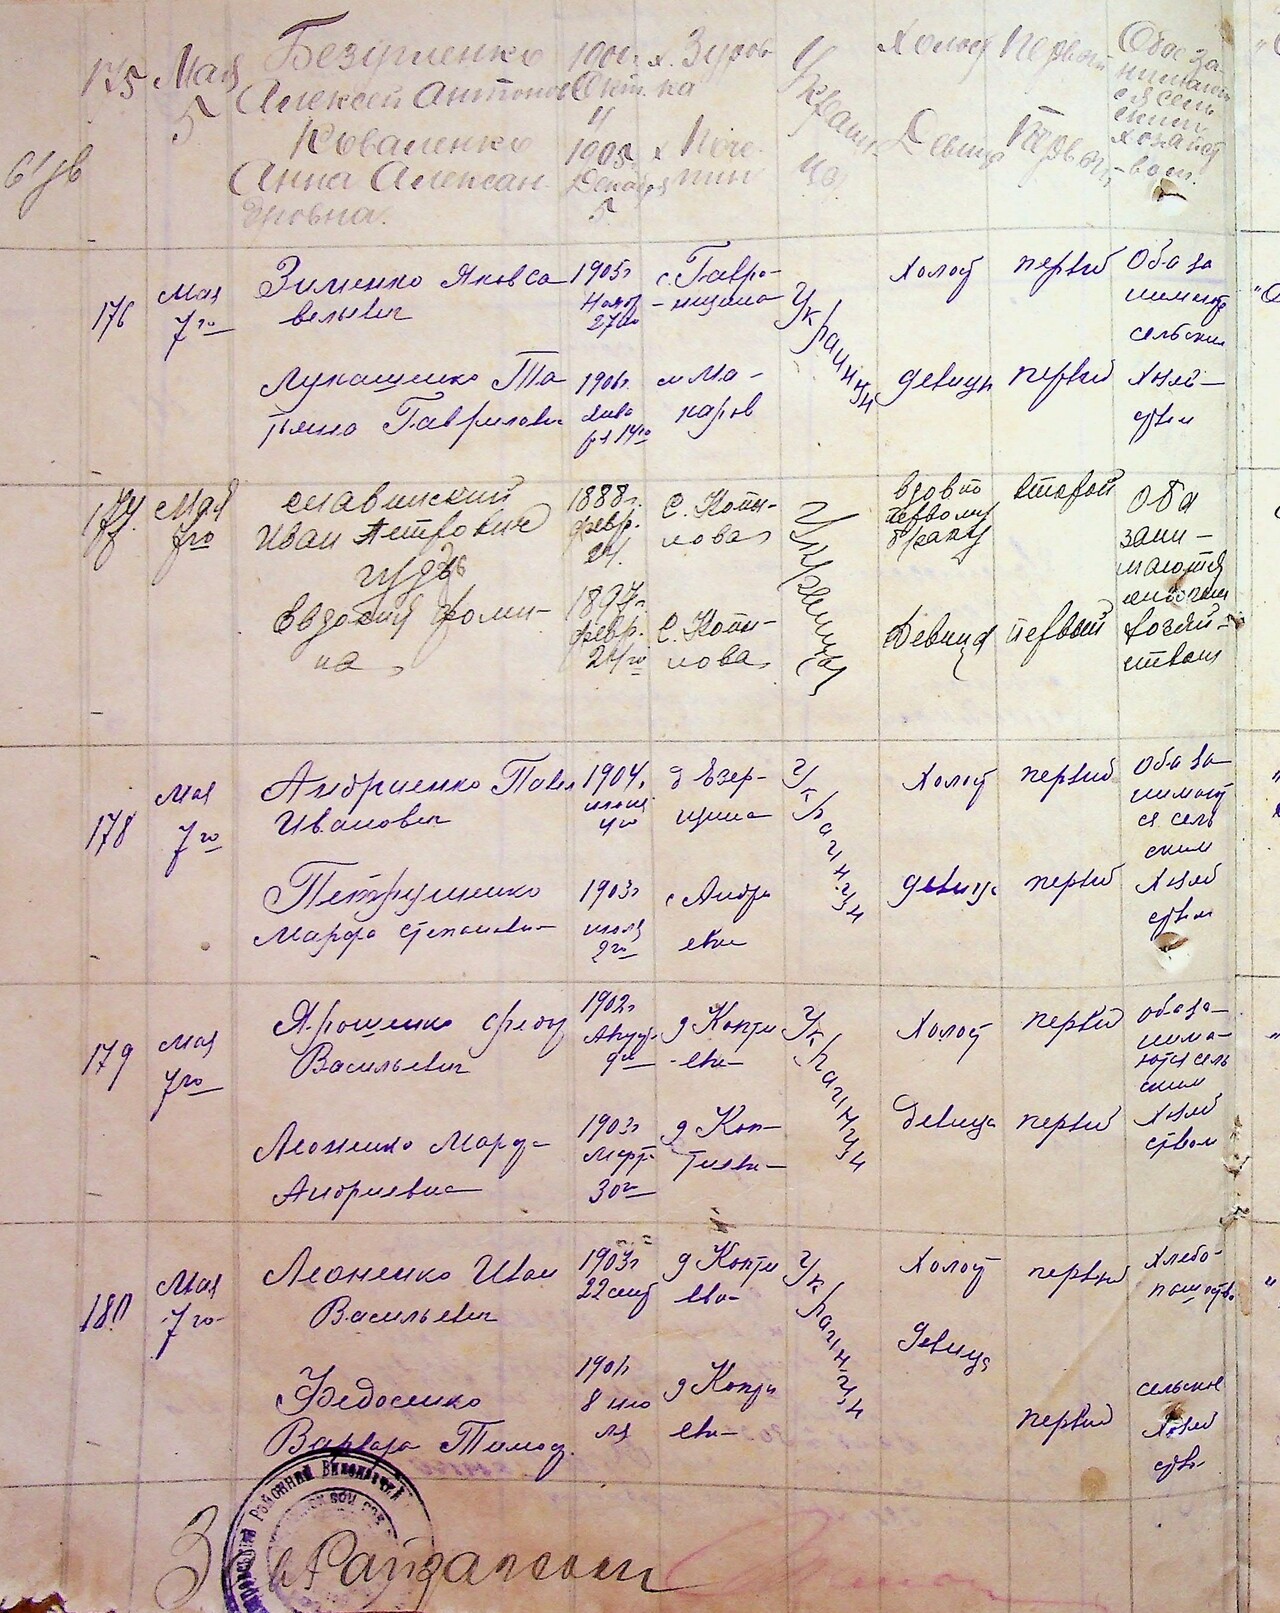 175 Мая 5
Безуменко
Алексей Антонов
1901г.
Окт.
х. Зуров
ка
Украин
ца
Холост Первый
Обое за-
нимают
ся сель
ским
хозяйст
-вом.
Коваленко
Анна Алексан.
дровна.
1905
Декабря
5
х
Девица Первый
176 Мая 7го
Зименко Яков Са
вельевич
1905г
Нояб
27го
с. Гавро-
-нщина
Украинцы
Холост первый
Оба за
нимают
сельским
Лукашенко Та
тьяна Гаврилов
1906г.
Янва
ря 14го
м Ма-
каров
девица первый
хозяй-
ством
177. Мая 7го
Славинский
Иван Петрович
1888г.
февр.
24.
С. Копы-
лова
Украинцы
вдов по
первому
браку
второй
Оба
зани-
маются
сельским
хозяй-
ством
Гудзь
Евдокия Фоми-
на
1897г.
февр.
24го
С. Копы-
лова
Девица первый
178 Мая 7го
Андриенко Павел
Иванович
1904г.
июня
4го
д Езер-
щина
Украинцы
Холост первый
Оба за-
нимают
ся сель
ским
Петрушенко
Марфа Степановн-
1903г
июля
2го
с Андре
евки
девица первый
хозяй
ством
179 Мая 7го
Ярошенко Федор
Васильевич
1902г
Август
9го
д Копти
-евк-
Украинцы
Холост первый
оба за-
нима-
ются сель
ским
Леоненко Марф-
Андриевна
1903г
Март
30го
д Коп-
тиевк-
Девица первый
хозяй
ством
180 Мая 7го-
Леоненко Иван
Васильевич
1903г
22 сент
д Копти
евк-
Украинцы
Холост первый
Хлебо-
пашество
Федосенко
Варвара Тимоф.
1901г
8 ию
ля
д Копти
евк-
Девица
первый
сельское
хозяй
ство
Районний Виконавчий
Зав Райзагсом